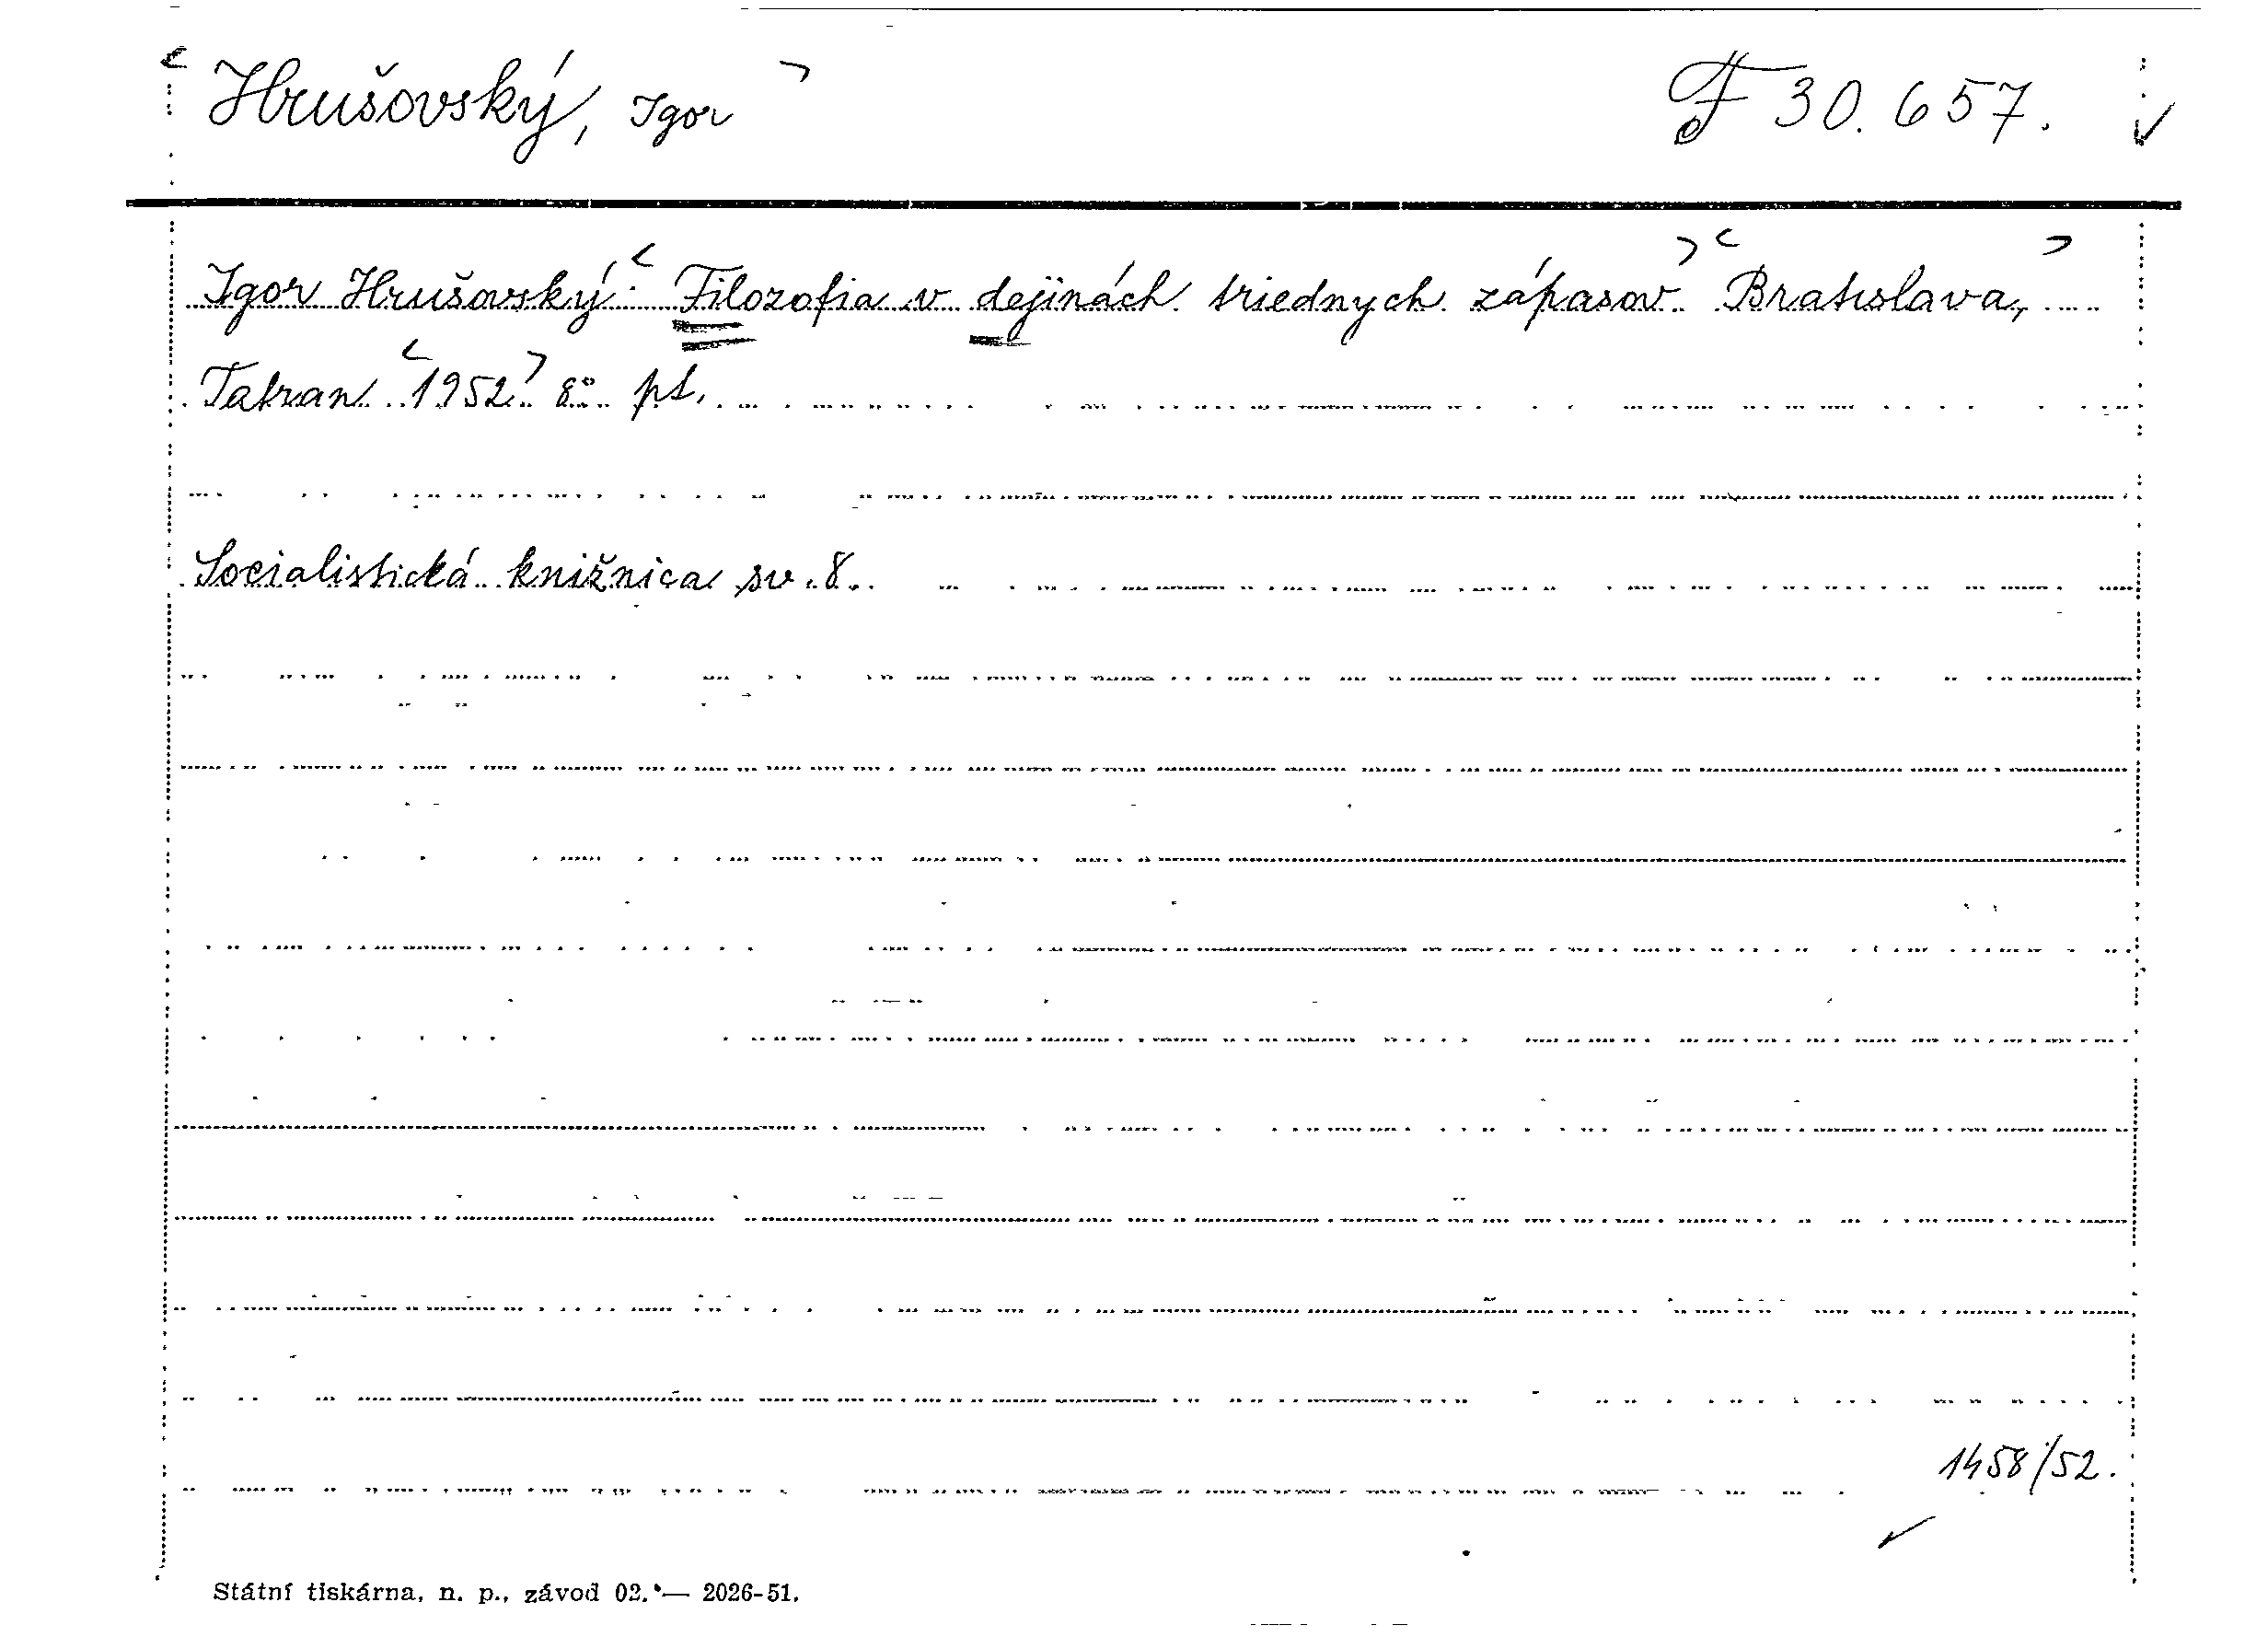 Hrušovský, Igor F 30.657.
Igor Hrušovský: Filozofia v dejinách triednych zápasov. Bratislava,
Tatran 1952. 8° pt.
Socialistická knižnica sv. 8.
1458/52.
Státní tiskárna, n. p., závod 02. — 2026-51.